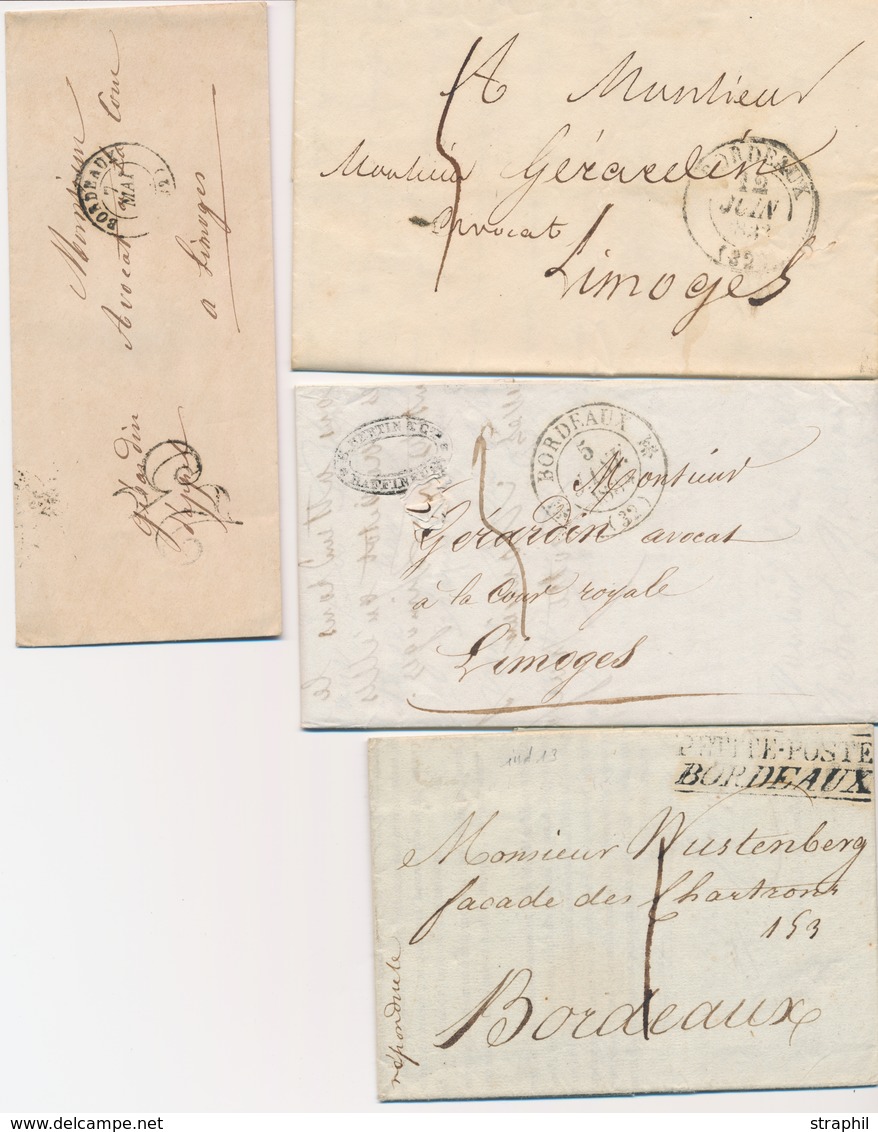 Monsieur
Avocat
a Limoges
BORDEAUX
7
MAI
A Monsieur
Monsieur Gérardin
Avocat
Limoges
BORDEAUX
12
JUIN
(32)
BORDEAUX
5
(32)
Monsieur
Gérardin avocat
à la Cour royale
Limoges
5
ind 13
PETITE-POSTE
BORDEAUX
Monsieur Wustenberg
facade des Chartrons
153
Bordeaux
répondu le
www.delcampe.net
straphil